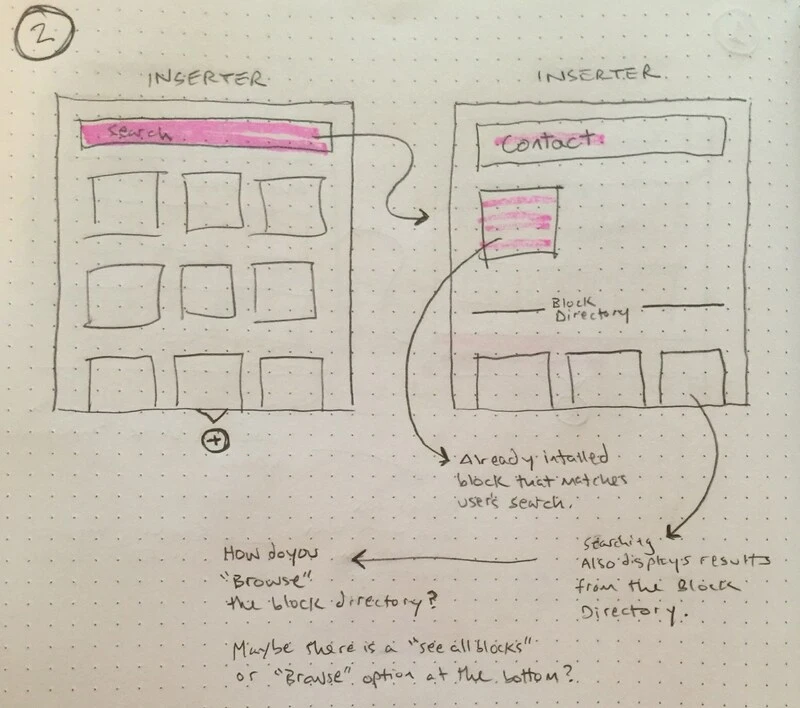 2
INSERTER
INSERTER
Search
Contact
Block
Directory
+
Already intalled
block that matches
user's search.
Searching
Also displays results
from the Block
Directory.
How do you
"Browse"
the block directory?
Maybe there is a "see all blocks"
or "Browse" option at the bottom?